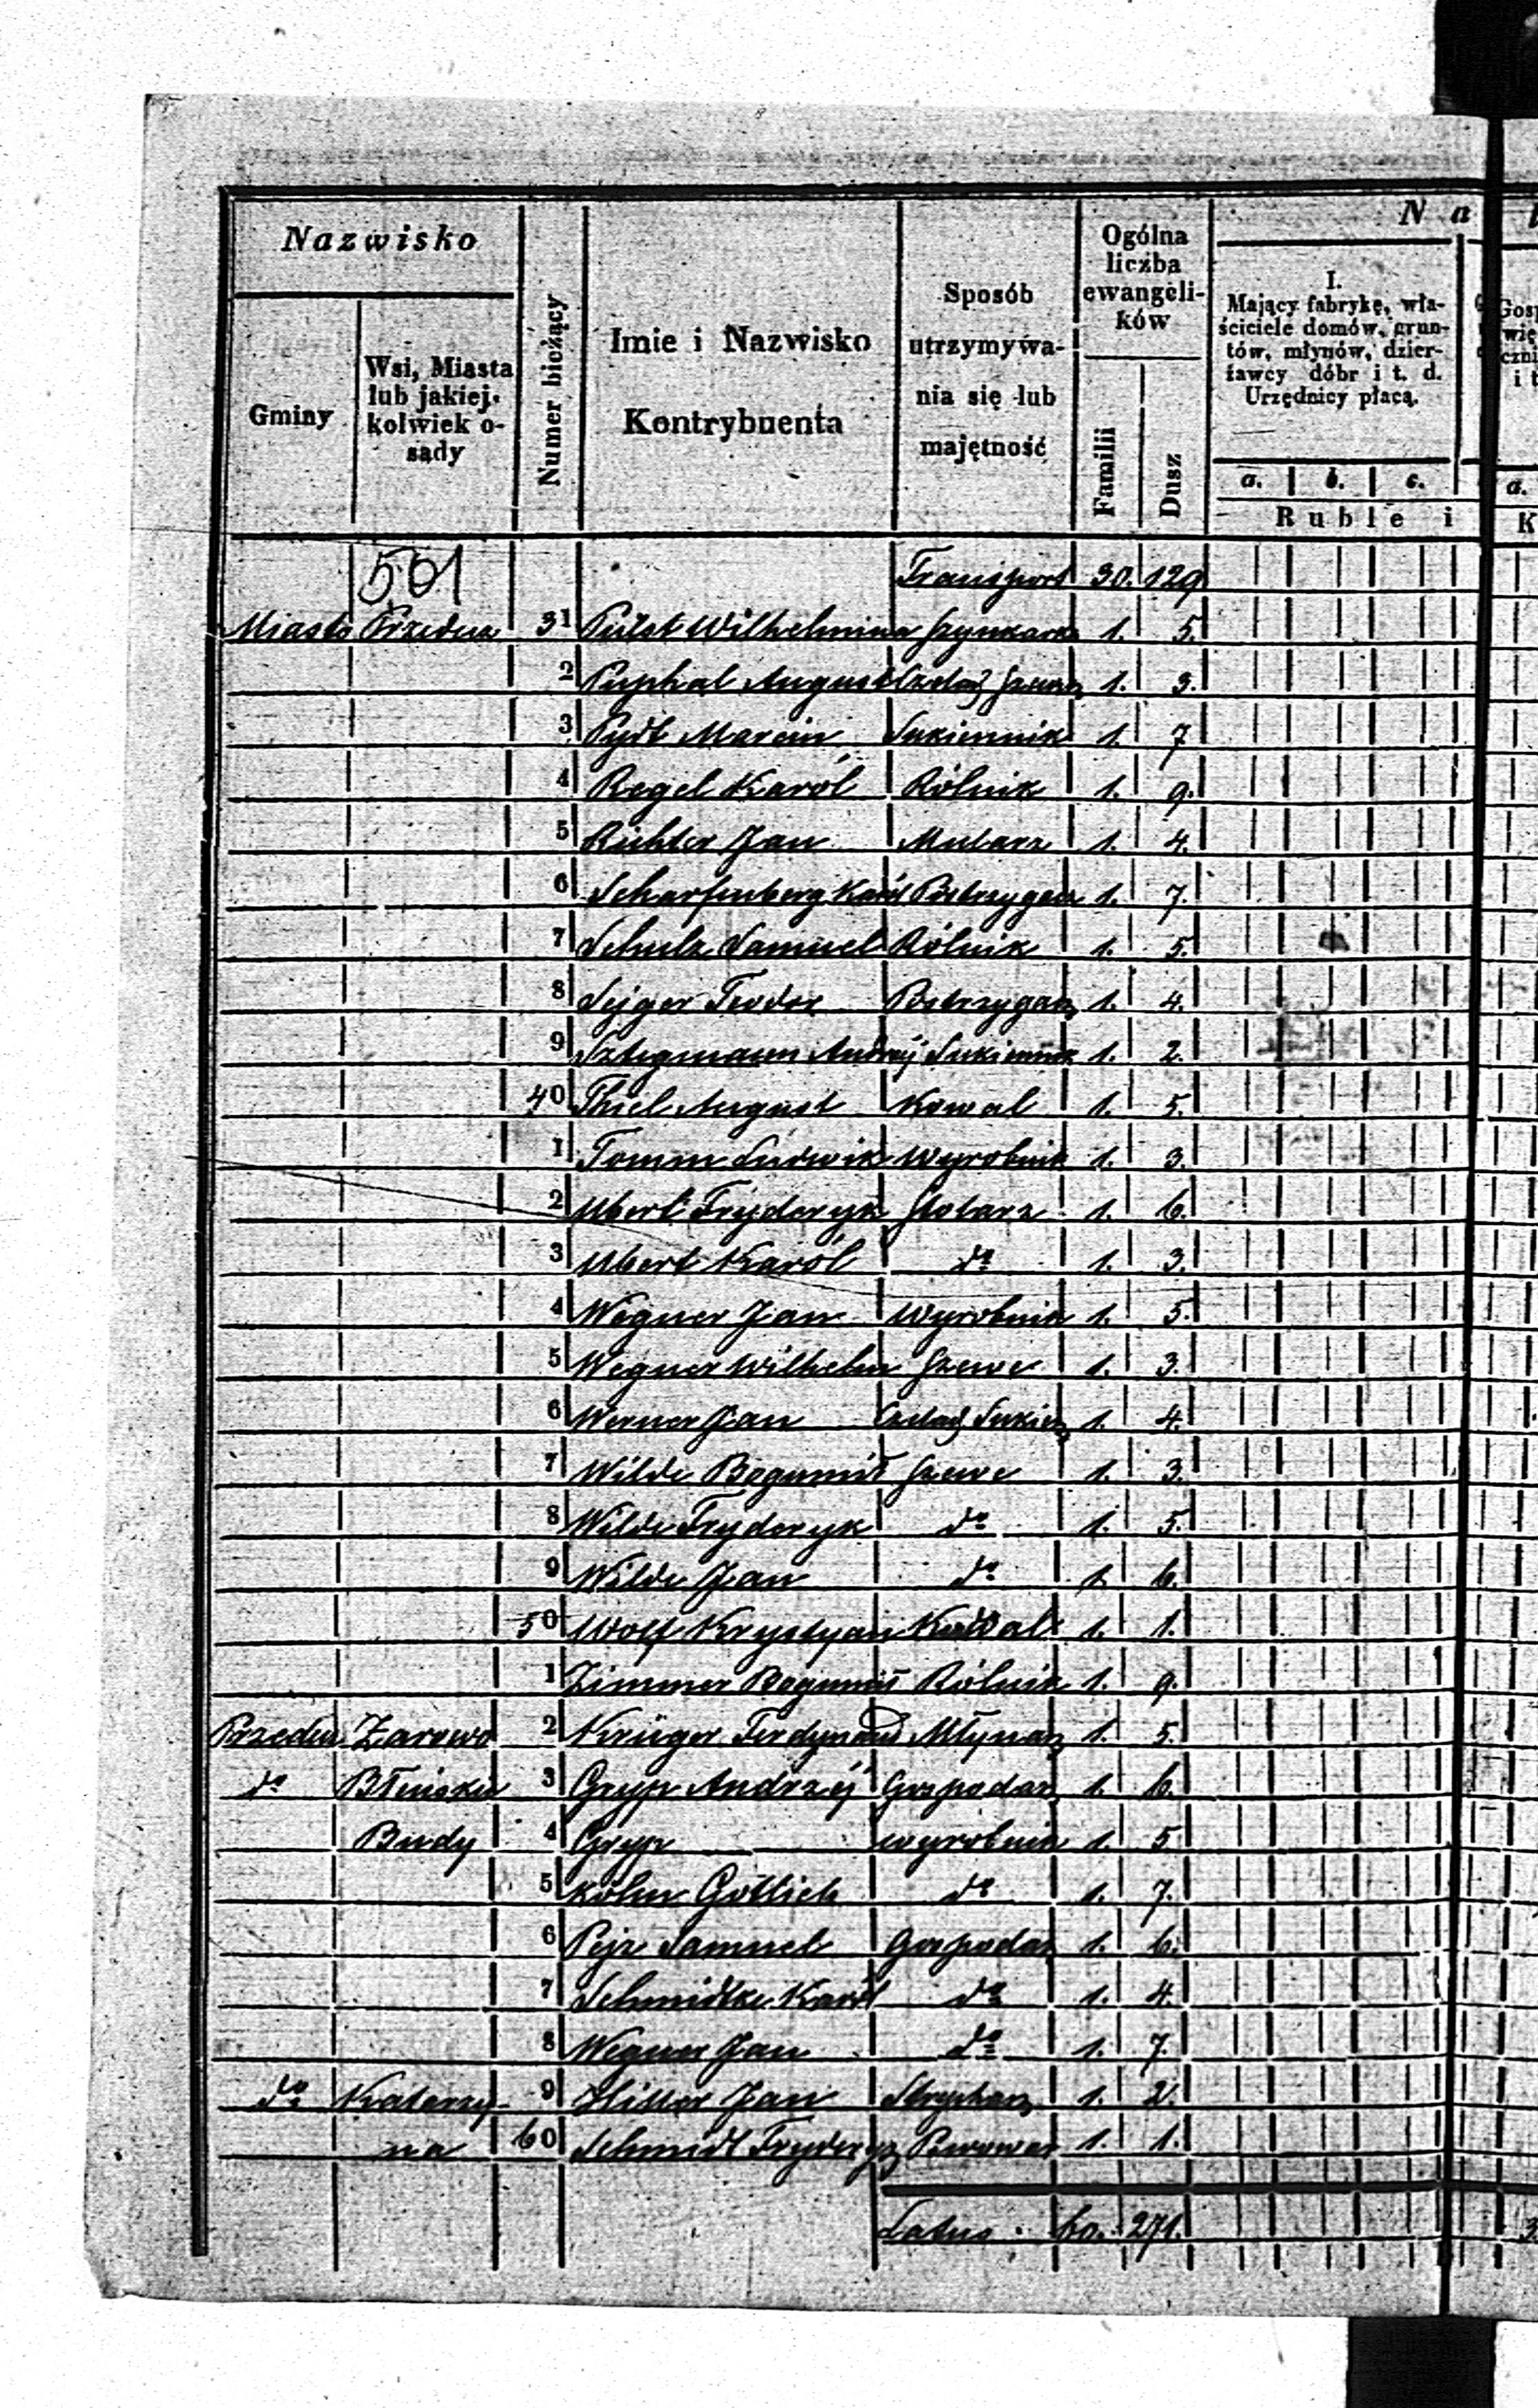 Nazwisko
Gminy
Wsi, Miasta lub jakiej- kolwiek o- sady
Numer bieżący
Imie i Nazwisko Kontrybuenta
Sposób utrzymywa- nia się lub majętność
Ogólna liczba ewangeli- ków
Familii
Dusz
N a
I.
Mający fabrykę, wła-
ściciele domów, grun-
tów, młynów, dzier-
żawcy dóbr i t. d.
Urzędnicy płacą.
a. b. c.
Ruble i
Gosp
wię
czni
i t
a.
K
501 Transport 30. 129
Miasto Przedecz 31 Pulst Wilhelmina Szynkarka 1. 5.
2 Puphal August Czelad Szewc 1. 3.
3 Pydt Marcin Sukiennik 1. 7
4 Regel Karól Rólnik 1. 9.
5 Richter Jan Mularz 1. 4.
6 Scharfenberg Karól Postrzygacz 1. 7.
7 Schulz Samuel Rólnik 1. 5.
8 Sejger Teodor Postrzygacz 1. 4.
9 Sztegmann Andrzéj Sukiennik 1. 2.
40 Thiel August Kowal 1. 5.
1 Tomm Ludwik Wyrobnik 1. 3.
2 Ubert Fryderyk Stolarz 1. 6.
3 Ubert Karól do 1. 3.
4 Wegner Jan Wyrobnik 1. 5.
5 Wegner Wilhelm Szewc 1. 3.
6 Werner Jan Czelad Sukien 1. 4.
7 Wilde Bogumił Szewc 1. 3.
8 Wilde Fryderyk do 1. 5.
9 Wilde Jan do 1 6.
50 Wolf Krystyan Kowal 1. 1.
1 Zimmer Bogumił Rólnik 1. 9.
Przedecz Zarowo 2 Krüger Ferdynand Młynarz 1. 5.
do 3 Gryp Andrzéj Gospodarz 1. 6.
Budy 4 Gryp wyrobnik 1. 5.
5 Kohn Gottlieb do 1. 7.
6 Pejz Samuel Gospodarz 1. 6.
7 Schmidtke Karól do 1. 4.
8 Wegner Jan do 1. 7.
do Katarzy- 9 Hitter Jan Strycharz 1. 2.
na 60 Schmidt Fryderyk Piwowar 1. 1.
Latus. 60. 271.
3